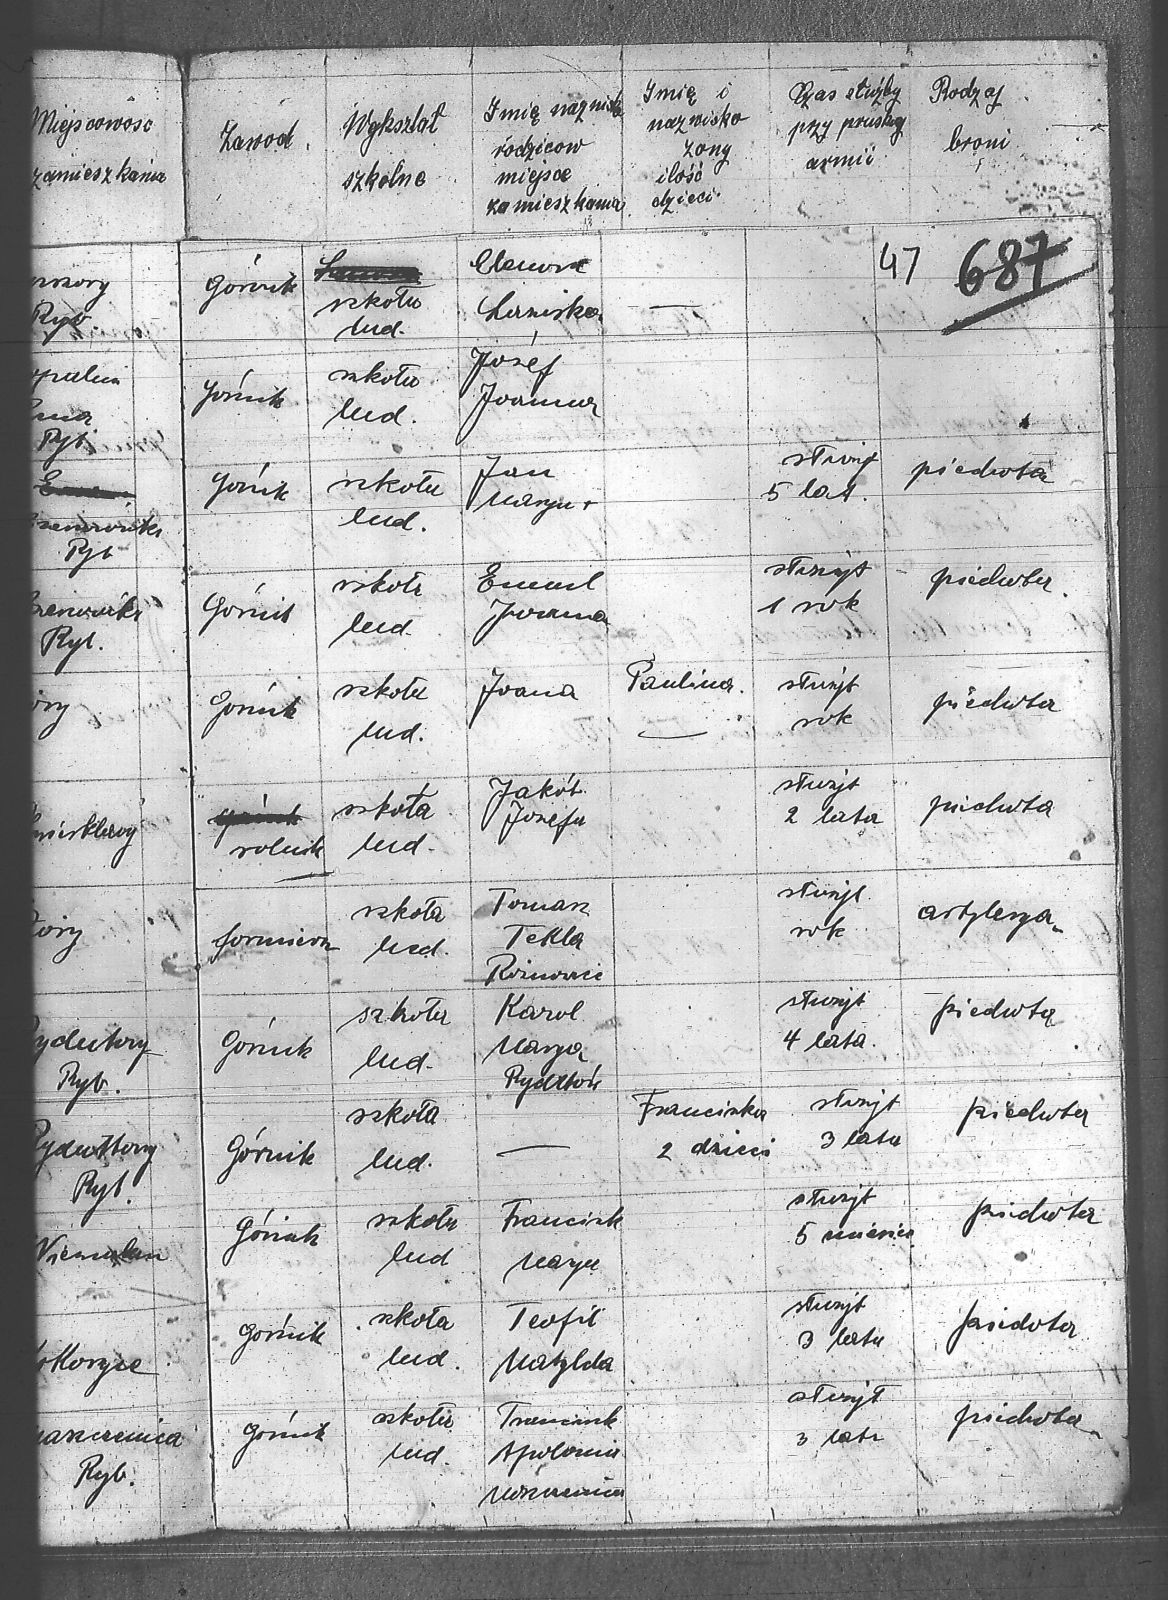 Miejscowość zamieszkania
Zawod
Wykształ szkolne
Imię nazwisk rodziców miejsce zamieszkania
Imię i nazwisko żony ilość dzieci
Czas służby przy pruskiej armii
Rodzaj broni
47 687
Ryb
Górnik
szkoła lud.
Eleonora
—
Ryb
Górnik
szkoła lud.
Józef Joanna
Ryb
Górnik
szkoła lud.
Jan Marya +
służył 5 lat.
piechota
Ryb.
Górnik
szkoła lud.
Emanl Joanna
służył 1 rok
piechota
Górnik
szkoła lud.
Joana
Paulina.
—
służył rok
piechota
rolnik
szkoła lud.
Jakób Josefa
służył 2 lata
piechota
szkoła lud.
Tomasz Tekla
służył rok
artylerya
Rydułtowy Ryb.
Górnik
szkoła lud.
Karol Marya Rydułtów
służył 4 lata.
piechota
Rydułtowy Ryb.
Górnik
szkoła lud.
—
Franciszka 2 dzieci
służył 3 lata
piechota
Górnik
szkoła lud
Franciszek Marya
służył 5 miesięc
piechota
Górnik
szkoła lud.
Teofil Matylda
służył 3 lata
piechota
Ryb.
Górnik
szkoła lud.
Franciszek Apolonia
służył 3 lata
piechota